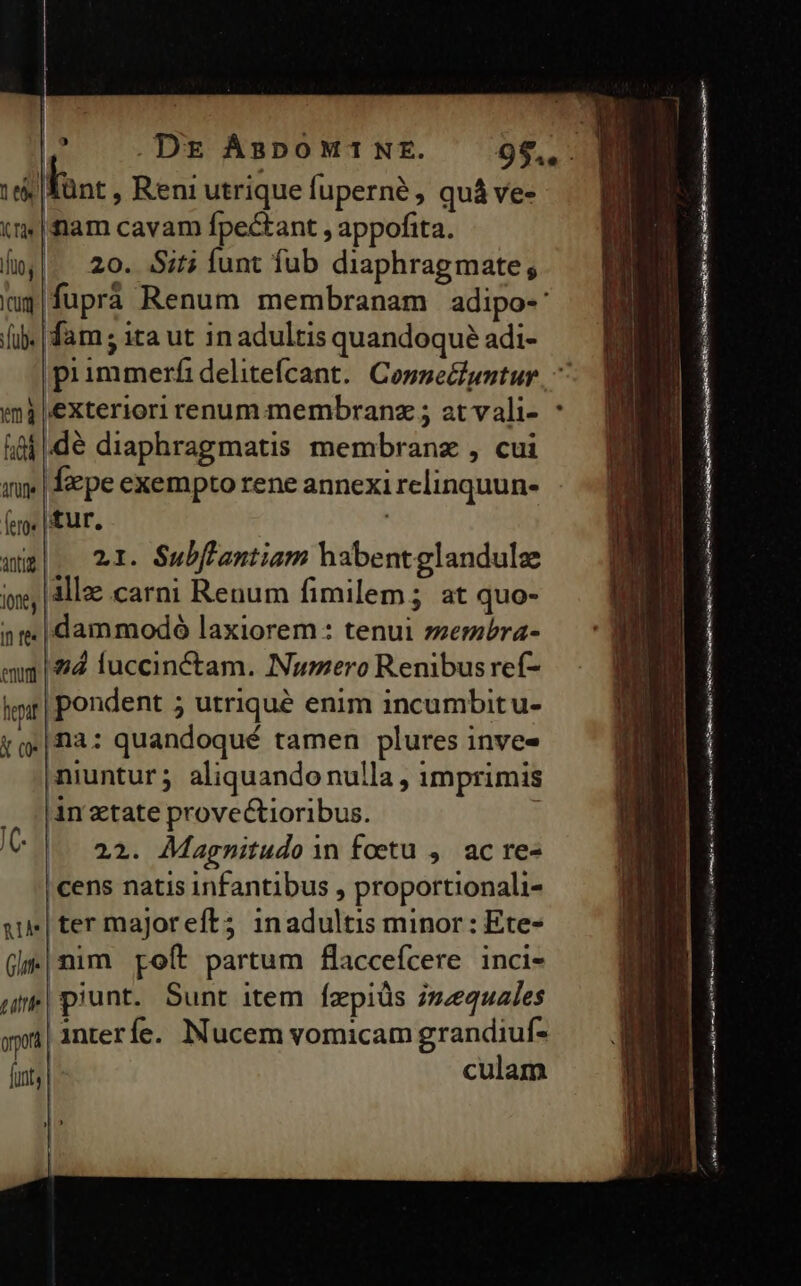 DE ABDOMINE. 95
ſunt, Reni utrique ſupernè, quâ ve-
nam cavam ſpectant, appoſita.
20. Siti ſunt ſub diaphragmate,
ſuprà Renum membranam adipo-
ſam; ita ut in adultis quandoquè adi-
pi immerſi deliteſcant. Connectuntur
exteriori renum membranæ; at vali-
dè diaphragmatis membranæ, cui
ſæpe exempto rene annexi relinquun-
tur.
21. Subſtantiam habent glandulæ
illæ carni Renum ſimilem; at quo-
dammodò laxiorem: tenui membra-
nâ ſuccinctam. Numero Renibus reſ-
pondent; utriquè enim incumbit u-
na: quandoqué tamen plures inve-
niuntur; aliquando nulla, imprimis
in ætate provectioribus.
22. Magnitudo in fœtu, ac re-
cens natis infantibus, proportionali-
ter major eſt; in adultis minor: Ete-
nim poſt partum flacceſcere inci-
piunt. Sunt item ſæpiùs inæquales
inter ſe. Nucem vomicam grandiuſ-
culam